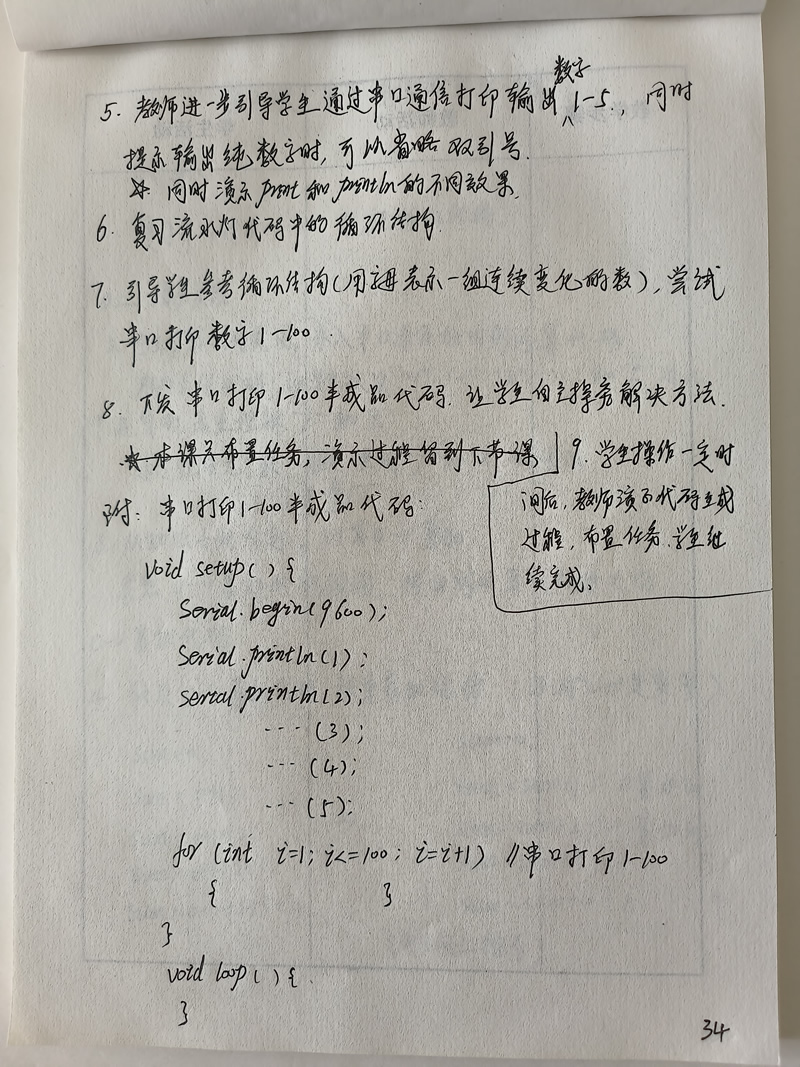 5. 教师进一步引导学生通过串口通信打印输出数字1-5., 同时
提示输出纯数字时,可以省略双引号.
☆ 同时演示print和println的不同效果.
6. 复习流水灯代码中的循环结构.
7. 引导学生参考循环结构(用字母表示一组连续变化的数),尝试
串口打印数字1-100.
8. 下发串口打印1-100半成品代码.让学生自主探究解决方法.
☆ 本课只布置任务,演示过程留到下节课
9. 学生操作一定时
间后,教师演示代码生成
过程,布置任务.学生继
续完成。
附: 串口打印1-100半成品代码:
void setup( ) {
Serial.begin(9600);
Serial.println(1);
serial.println(2);
--- (3);
--- (4);
--- (5);
for (int i=1; i<=100; i=i+1) //串口打印1-100
{ }
}
void loop( ) {.
}
34